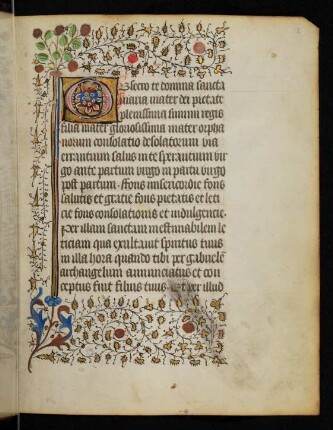 Obsecro te domina sancta
maria mater dei pietate
plenissima summi regis
filia mater gloriosissima mater orpha
norum consolatio desolatorum via
errantium salus in te sperantium vir
go ante partum virgo in partu virgo
post partum. ffons misericordie fons
salutis et gratie fons pietatis et leti
cie fons consolationis et indulgencie.
per illam sanctam inestimabilem le
ticiam qua exultauit spiritus tuus
in illa hora quando tibi per gabrielem
archangelum annunciatus et con
ceptus fuit filius tuus. et per illud